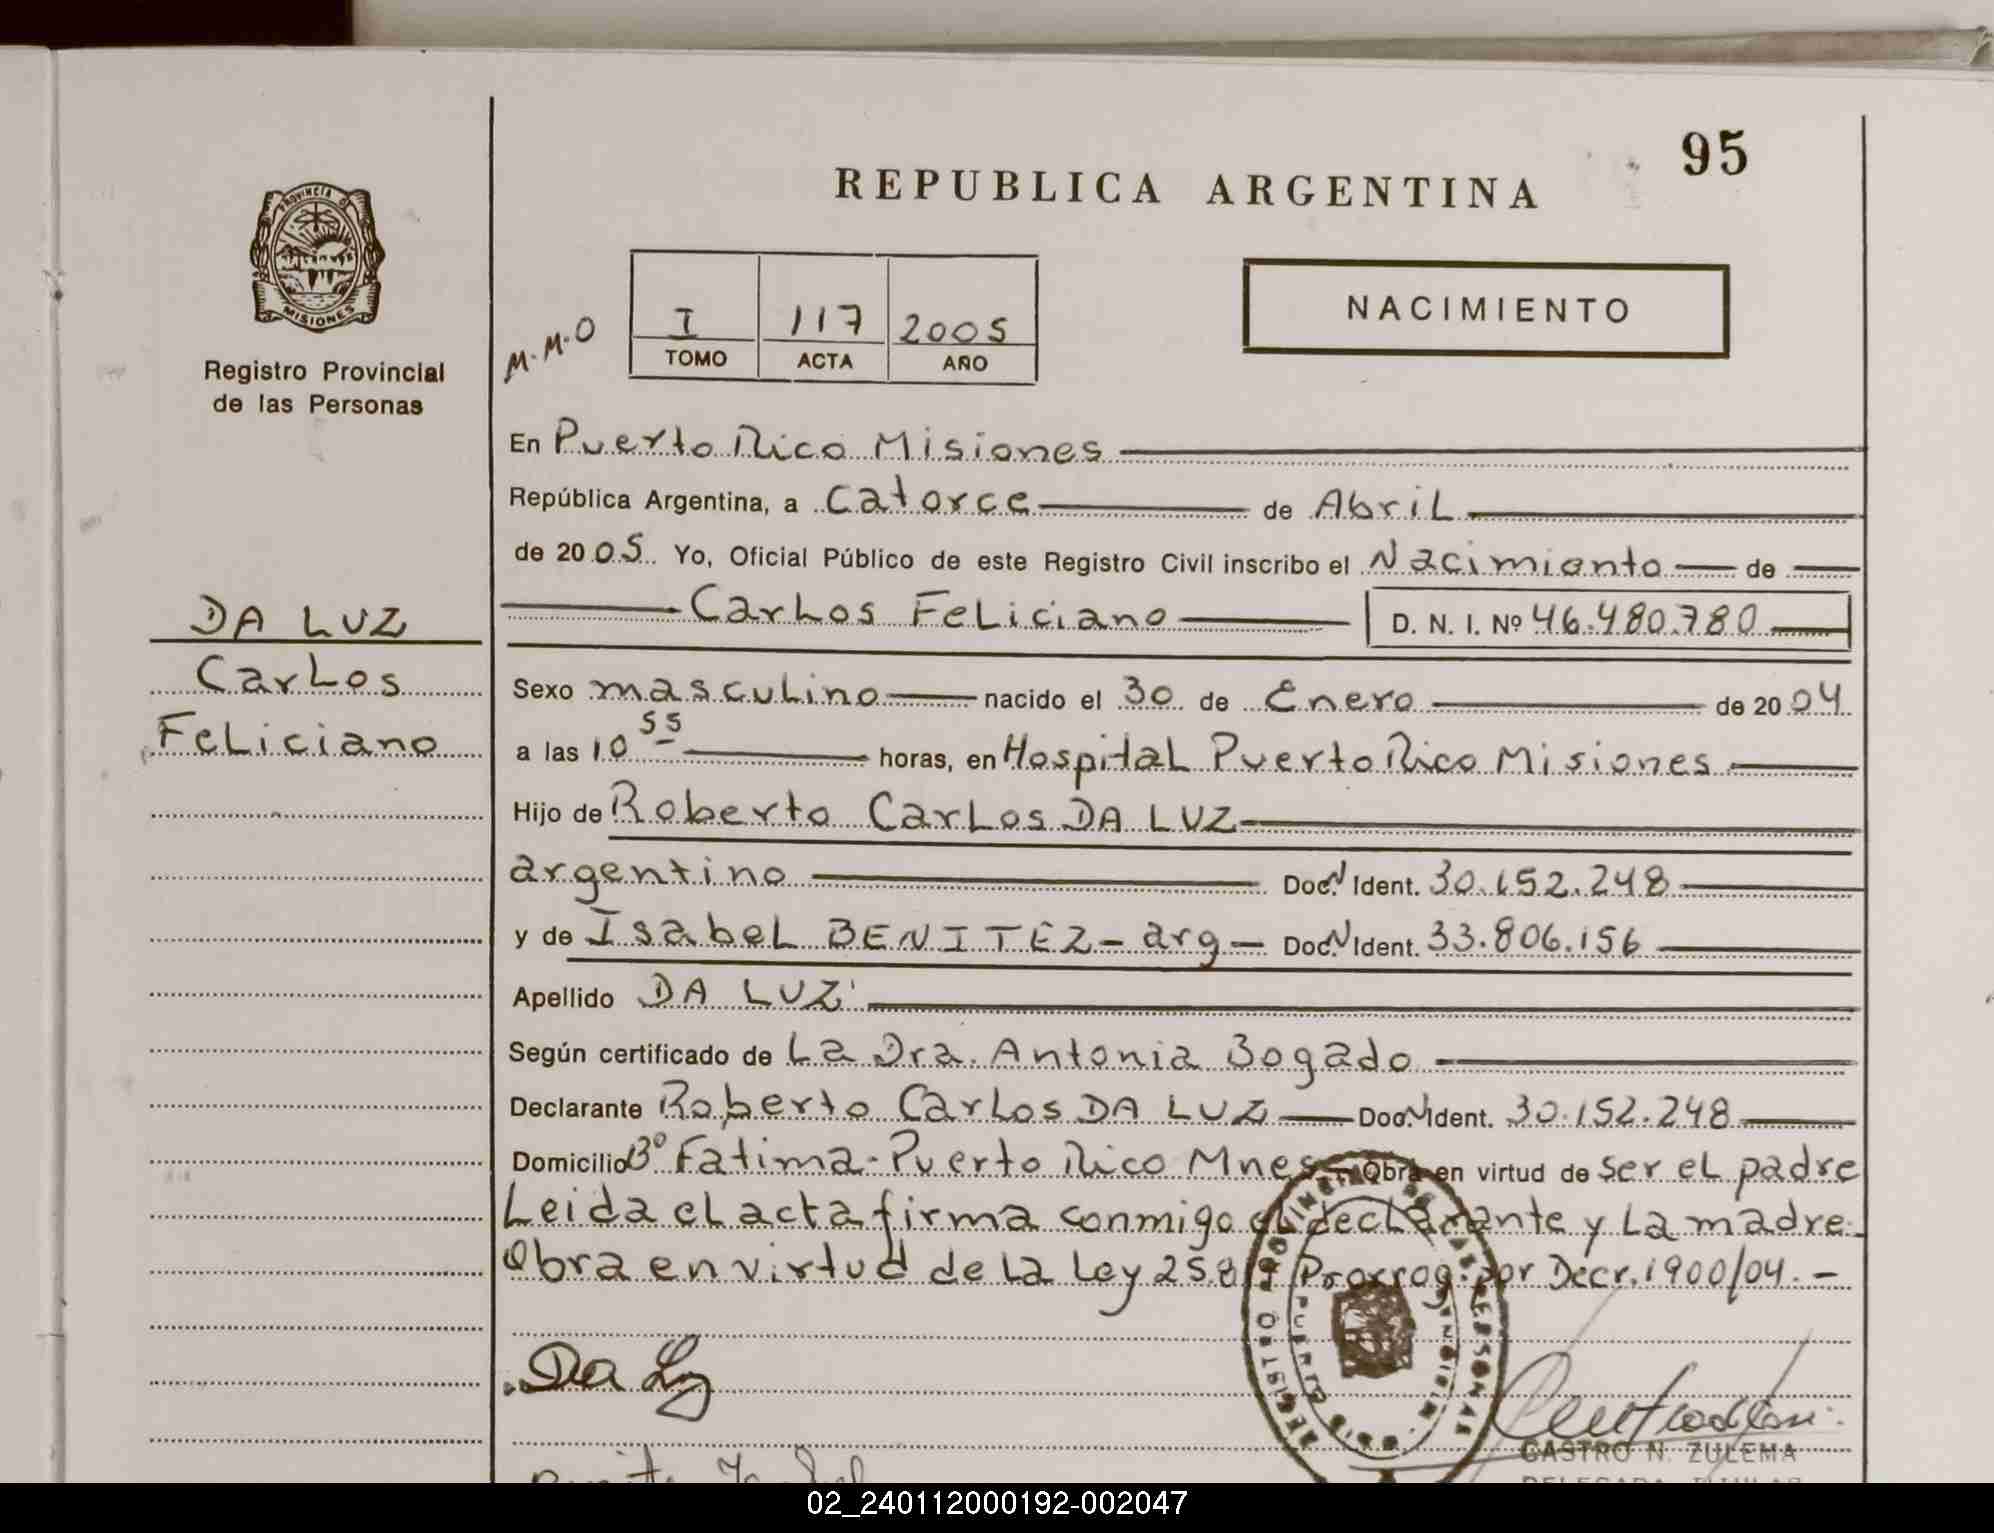 95
REPUBLICA ARGENTINA
PROVINCIA DE MISIONES
NACIMIENTO
M.M.O
I 117 2005
TOMO ACTA AÑO
Registro Provincial
de las Personas
DA LUZ
Carlos
Feliciano
En Puerto Rico Misiones
República Argentina, a Catorce de Abril
de 2005 Yo, Oficial Público de este Registro Civil inscribo el Nacimianto de
Carlos Feliciano D. N. I. Nº 46.480.780
Sexo masculino nacido el 30 de Enero de 2004
a las 10 55 horas, en Hospital Puerto Rico Misiones
Hijo de Roberto Carlos DA LUZ
argentino Doc. N Ident. 30.152.248
y de Isabel BENITEZ - arg - Doc. N Ident. 33.806.156
Apellido DA LUZ
Según certificado de La Dra. Antonia Bogado
Declarante Roberto Carlos DA LUZ Doc. N Ident. 30.152.248
Domicilio Bº Fatima - Puerto Rico Mnes - Obra en virtud de ser el padre
Leida el acta firma conmigo el declarante y La madre.
Obra en virtud de la Ley 25.819 Prorrog. por Decr. 1900/04. -
Da Luz
REGISTRO PROVINCIAL DE LAS PERSONAS
PUERTO RICO MISIONES
CASTRO N. ZULEMA
02_240112000192-002047